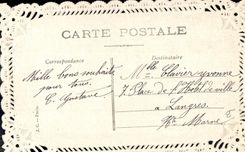 CARTE POSTALE
Correspondance
Mille bons souhaits
pour tous.
E. Gustave
Destinataire
Mlle Clavier Yvonne
7. Place de l'Hôtel de ville
à Langres
Hte Marne